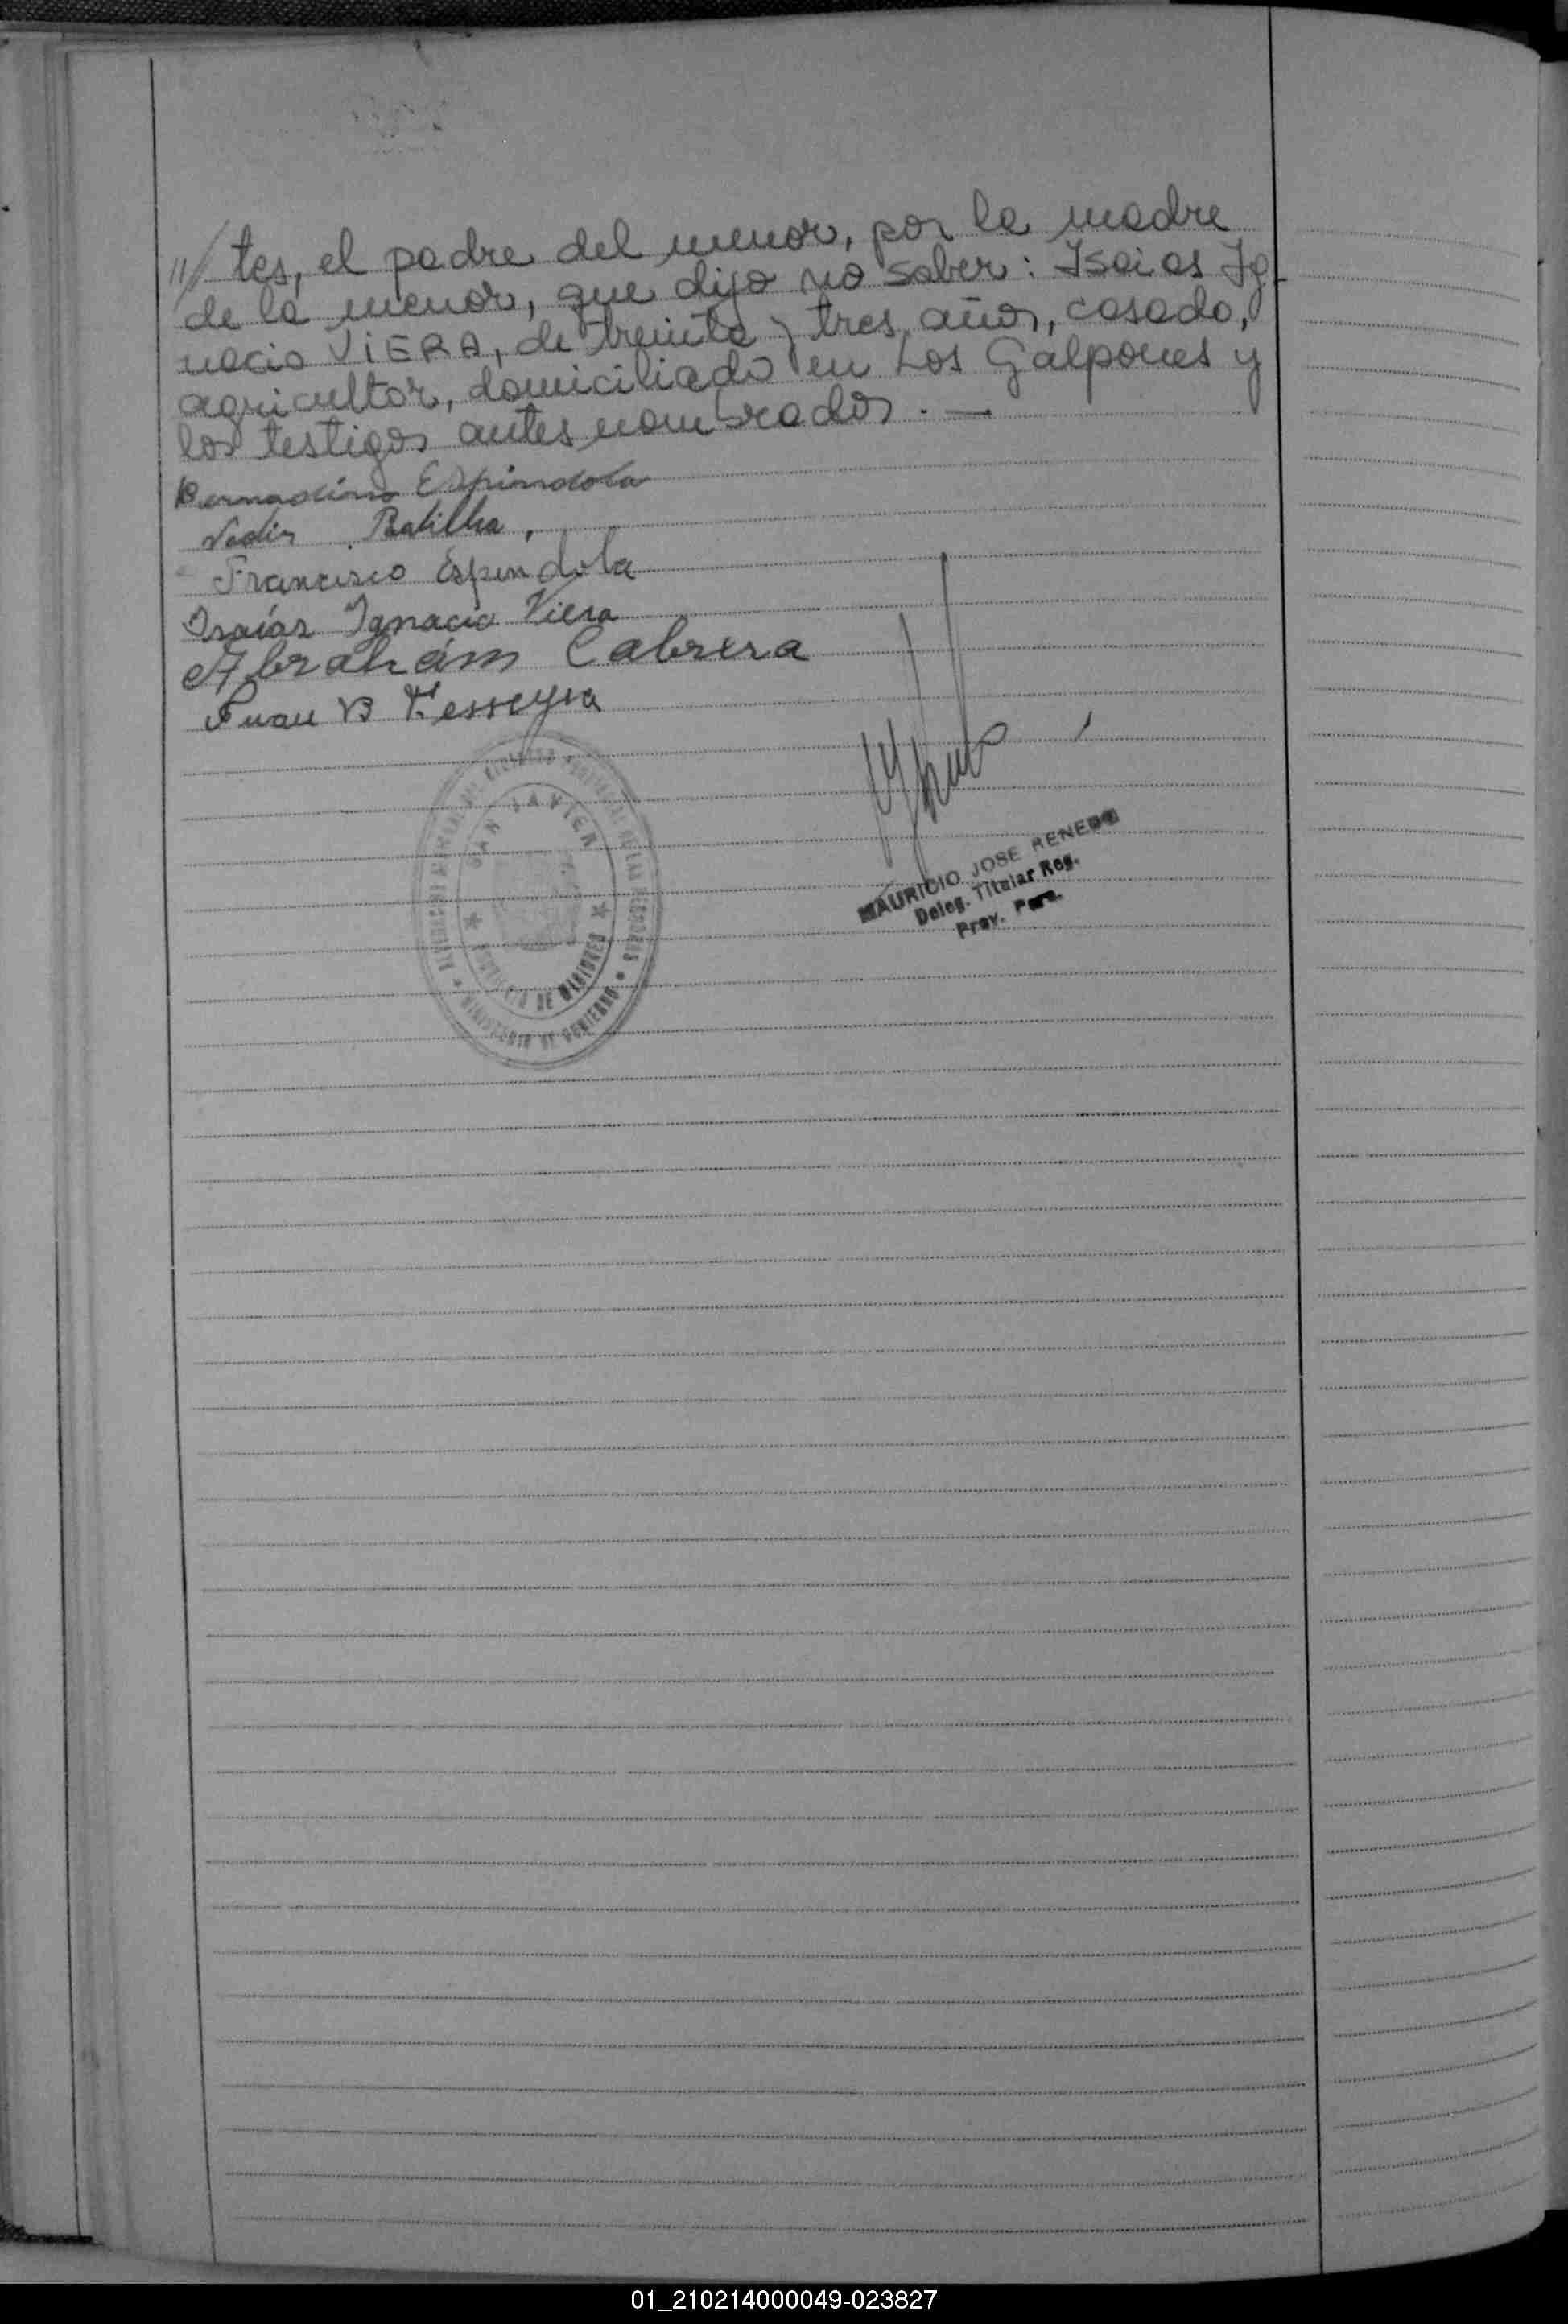 // tes, el padre del menor, por la madre
de la menor, que dijo no saber: Isaias Ig-
nacio VIERA, de treinta y tres años, casado,
agricultor, domiciliado en Los Galpones y
los testigos antes nombrados. —
Bernadino Espindola
Nadir Padilha,
Francisco Espindola
Isaías Ignacio Viera
Abrahám Cabrera
Juan B Tesseyra
SAN JAVIER
PROVINCIA DE MISIONES
REGISTRO PROVINCIAL DE LAS PERSONAS
MINISTERIO DE GOBIERNO
MAURICIO JOSE RENEDO
Deleg. Titular Reg.
Prov. Pers.
01_210214000049-023827